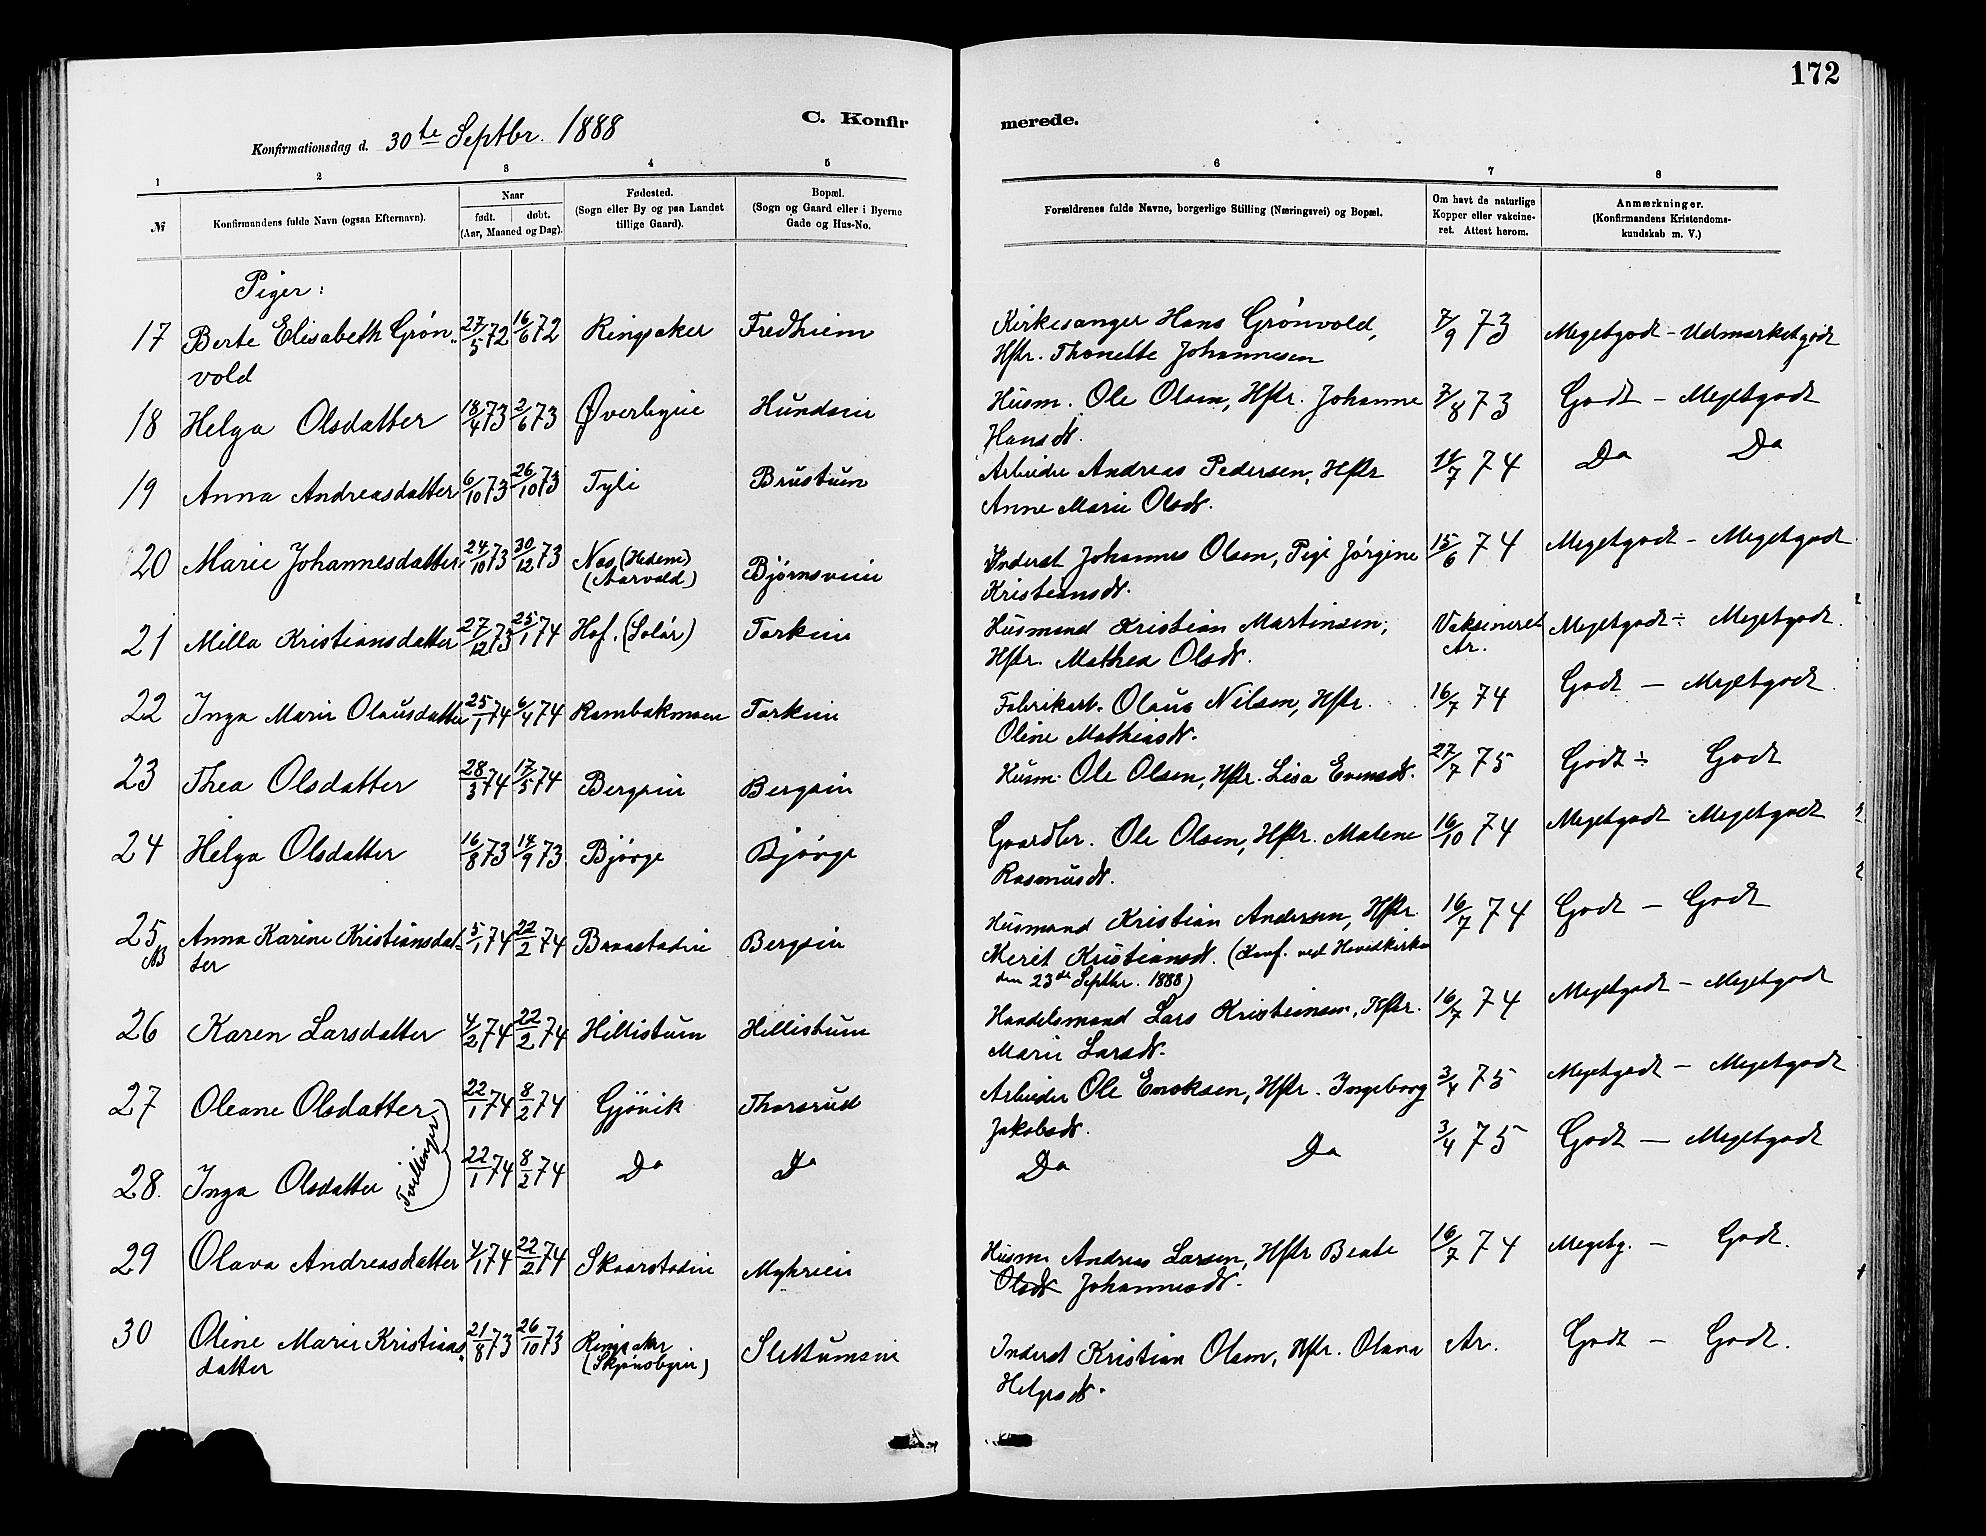 172
C. Konfir merede.
Konfirmationsdag d. 30te Septbr. 1888
1 2 3 4 5 6 7 8
№
Konfirmandens fulde Navn (ogsaa Efternavn).
Naar
født. døbt.
(Aar, Maaned og Dag).
Fødested.
(Sogn eller By og paa Landet
tillige Gaard).
Bopæl.
(Sogn og Gaard eller i Byerne
Gade og Hus-No.
Forældrenes fulde Navne, borgerlige Stilling (Næringsvei) og Bopæl.
Om havt de naturlige
Kopper eller vakcine-
ret. Attest herom.
Anmærkninger.
(Konfirmandens Kristendoms-
kundskab m. V.)
Piger:
17 Berte Elisabeth Grøn- 27/5 72 16/6 72 Ringsaker Fredheim Kirkesanger Hans Grønvold, 7/9 73 Megetgodt - Udmerketgodt
vold Hstr. Thonette Johannesen
18 Helga Olsdatter 18/4 73 2/6 73 Øverbyeie Hundseie Husm. Ole Olsen, Hstr. Johanne 7/8 73 Godt - Megetgodt
Hansdt.
19 Anna Andreasdatter 6/10 73 26/10 73 Tyli Brustuen Arbeider Andreas Pedersen, Hstr 14/7 74 Do Do
Anne Marie Olsdt.
20 Marie Johannesdatter 24/10 73 30/12 73 Nes (Hedem) Bjørnsveie Inderst Johannes Olsen, Pige Jørgine 15/6 74 Megetgodt - Megetgodt
(Aarvold) Kristiansdt.
21 Milla Kristiansdatter 27/12 73 25/1 74 Hof. (Solør) Torkeie Husmand Kristian Martinsen, Vaksineret Megetgodt ÷ Megetgodt.
Hstr. Mathea Olsdt. Ar.
22 Inga Marie Olausdatter 25/1 74 6/4 74 Rambekmoen Torkeie Fabrikarb. Olaus Nilsen, Hstr. 16/7 74 Godt - Megetgodt.
Oline Mathiasdt.
23 Thea Olsdatter 28/3 74 17/5 74 Bergseie Bergseie Husm. Ole Olsen, Hstr. Lisa Evensdt. 27/7 75 Godt ÷ Godt
24 Helga Olsdatter 16/8 73 14/9 73 Bjørge Bjørge Gaardbr. Ole Olsen, Hstr. Malene 16/10 74 Megetgodt - Megetgodt
Rasmusdt.
25 Anna Karine Kristiansdat- 5/1 74 22/2 74 Braastadeie Bergseie Husmand Kristian Andersen, Hstr. 16/7 74 Godt - Godt
NB ter Merit Kristiansdt. (Konf. ved Hovedkirken
den 23de Septbr. 1888)
26 Karen Larsdatter 4/2 74 22/2 74 Hillistuen Hillistuen Handelsmand Lars Kristiansen, Hstr. 16/7 74 Megetgodt - Megetgodt
Marie Larsdt.
27 Oleane Olsdatter 22/1 74 8/2 74 Gjøvik Thorsrud Arbeider Ole Enoksen, Hstr. Ingeborg 3/4 75 Megetgodt - Megetgodt
Jakobsdt.
Tvillinger
28. Inga Olsdatter 22/1 74 8/2 74 Do Do Do Do 3/4 75 Godt - Megetgodt
29 Olava Andreasdatter 4/1 74 22/2 74 Skaarstadeie Myhreie Husm. Andreas Larsen, Hstr Beate 16/7 74 Megetg. - Godt.
Olsdt Johannesdt.
30 Oline Marie Kristians- 21/8 73 26/10 73 Ringsaker Slettumseie Inderst Kristian Olsen, Hstr. Olava Ar. Godt - Godt.
datter (Skjønsbyeie) Helgesdt.